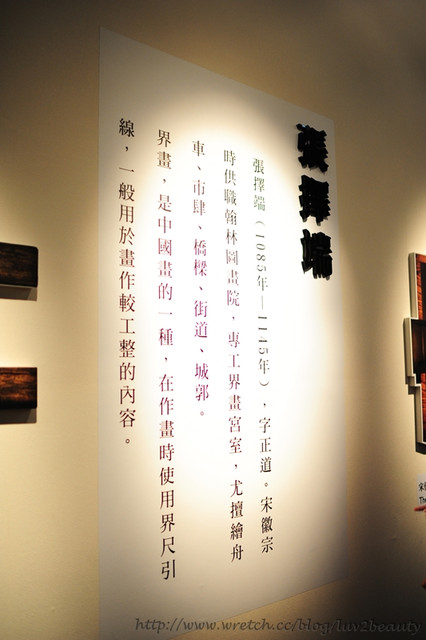 張擇端
張擇端（1085年—1145年），字正道。宋徽宗
時供職翰林圖畫院，專工界畫宮室，尤擅繪舟
車、市肆、橋樑、街道、城郭。
界畫，是中國畫的一種，在作畫時使用界尺引
線，一般用於畫作較工整的內容。
http://www.wretch.cc/blog/luv2beauty